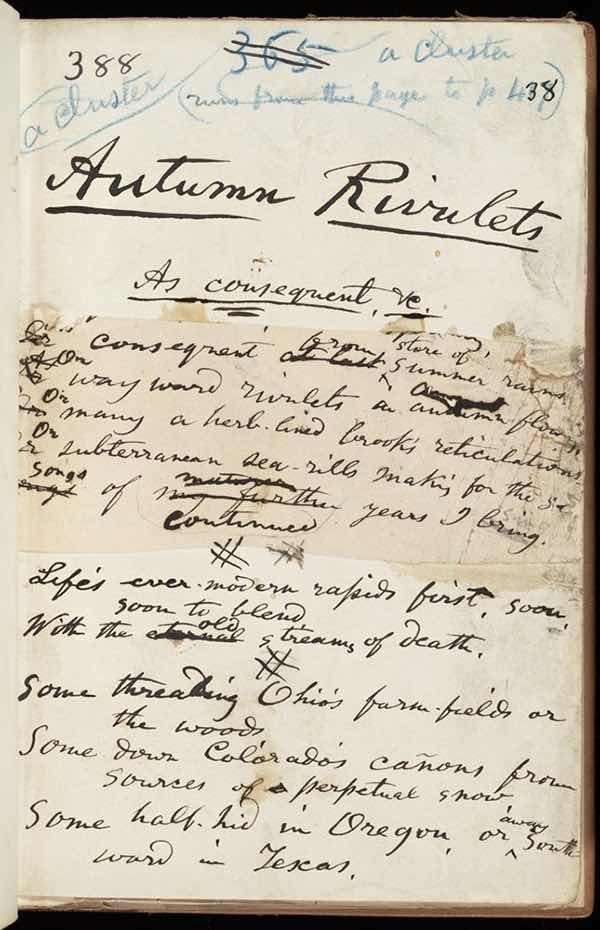 388 365 a cluster
a cluster (runs from this page to p 38)
Autumn Rivulets
As consequent, &c.
consequent from store of Summer rains,
Or wayward rivulets in autumn flowing
Or many a herb-lined brook's reticulations
Or subterranean sea-rills making for the sea
Songs of continued years I bring.
Life's ever-modern rapids first, soon,
soon to blend
With the old streams of death.
Some threading Ohio's farm-fields or
the woods
Some down Colorado's cañons from
sources of perpetual snow
Some half-hid in Oregon, or away South
ward in Texas,